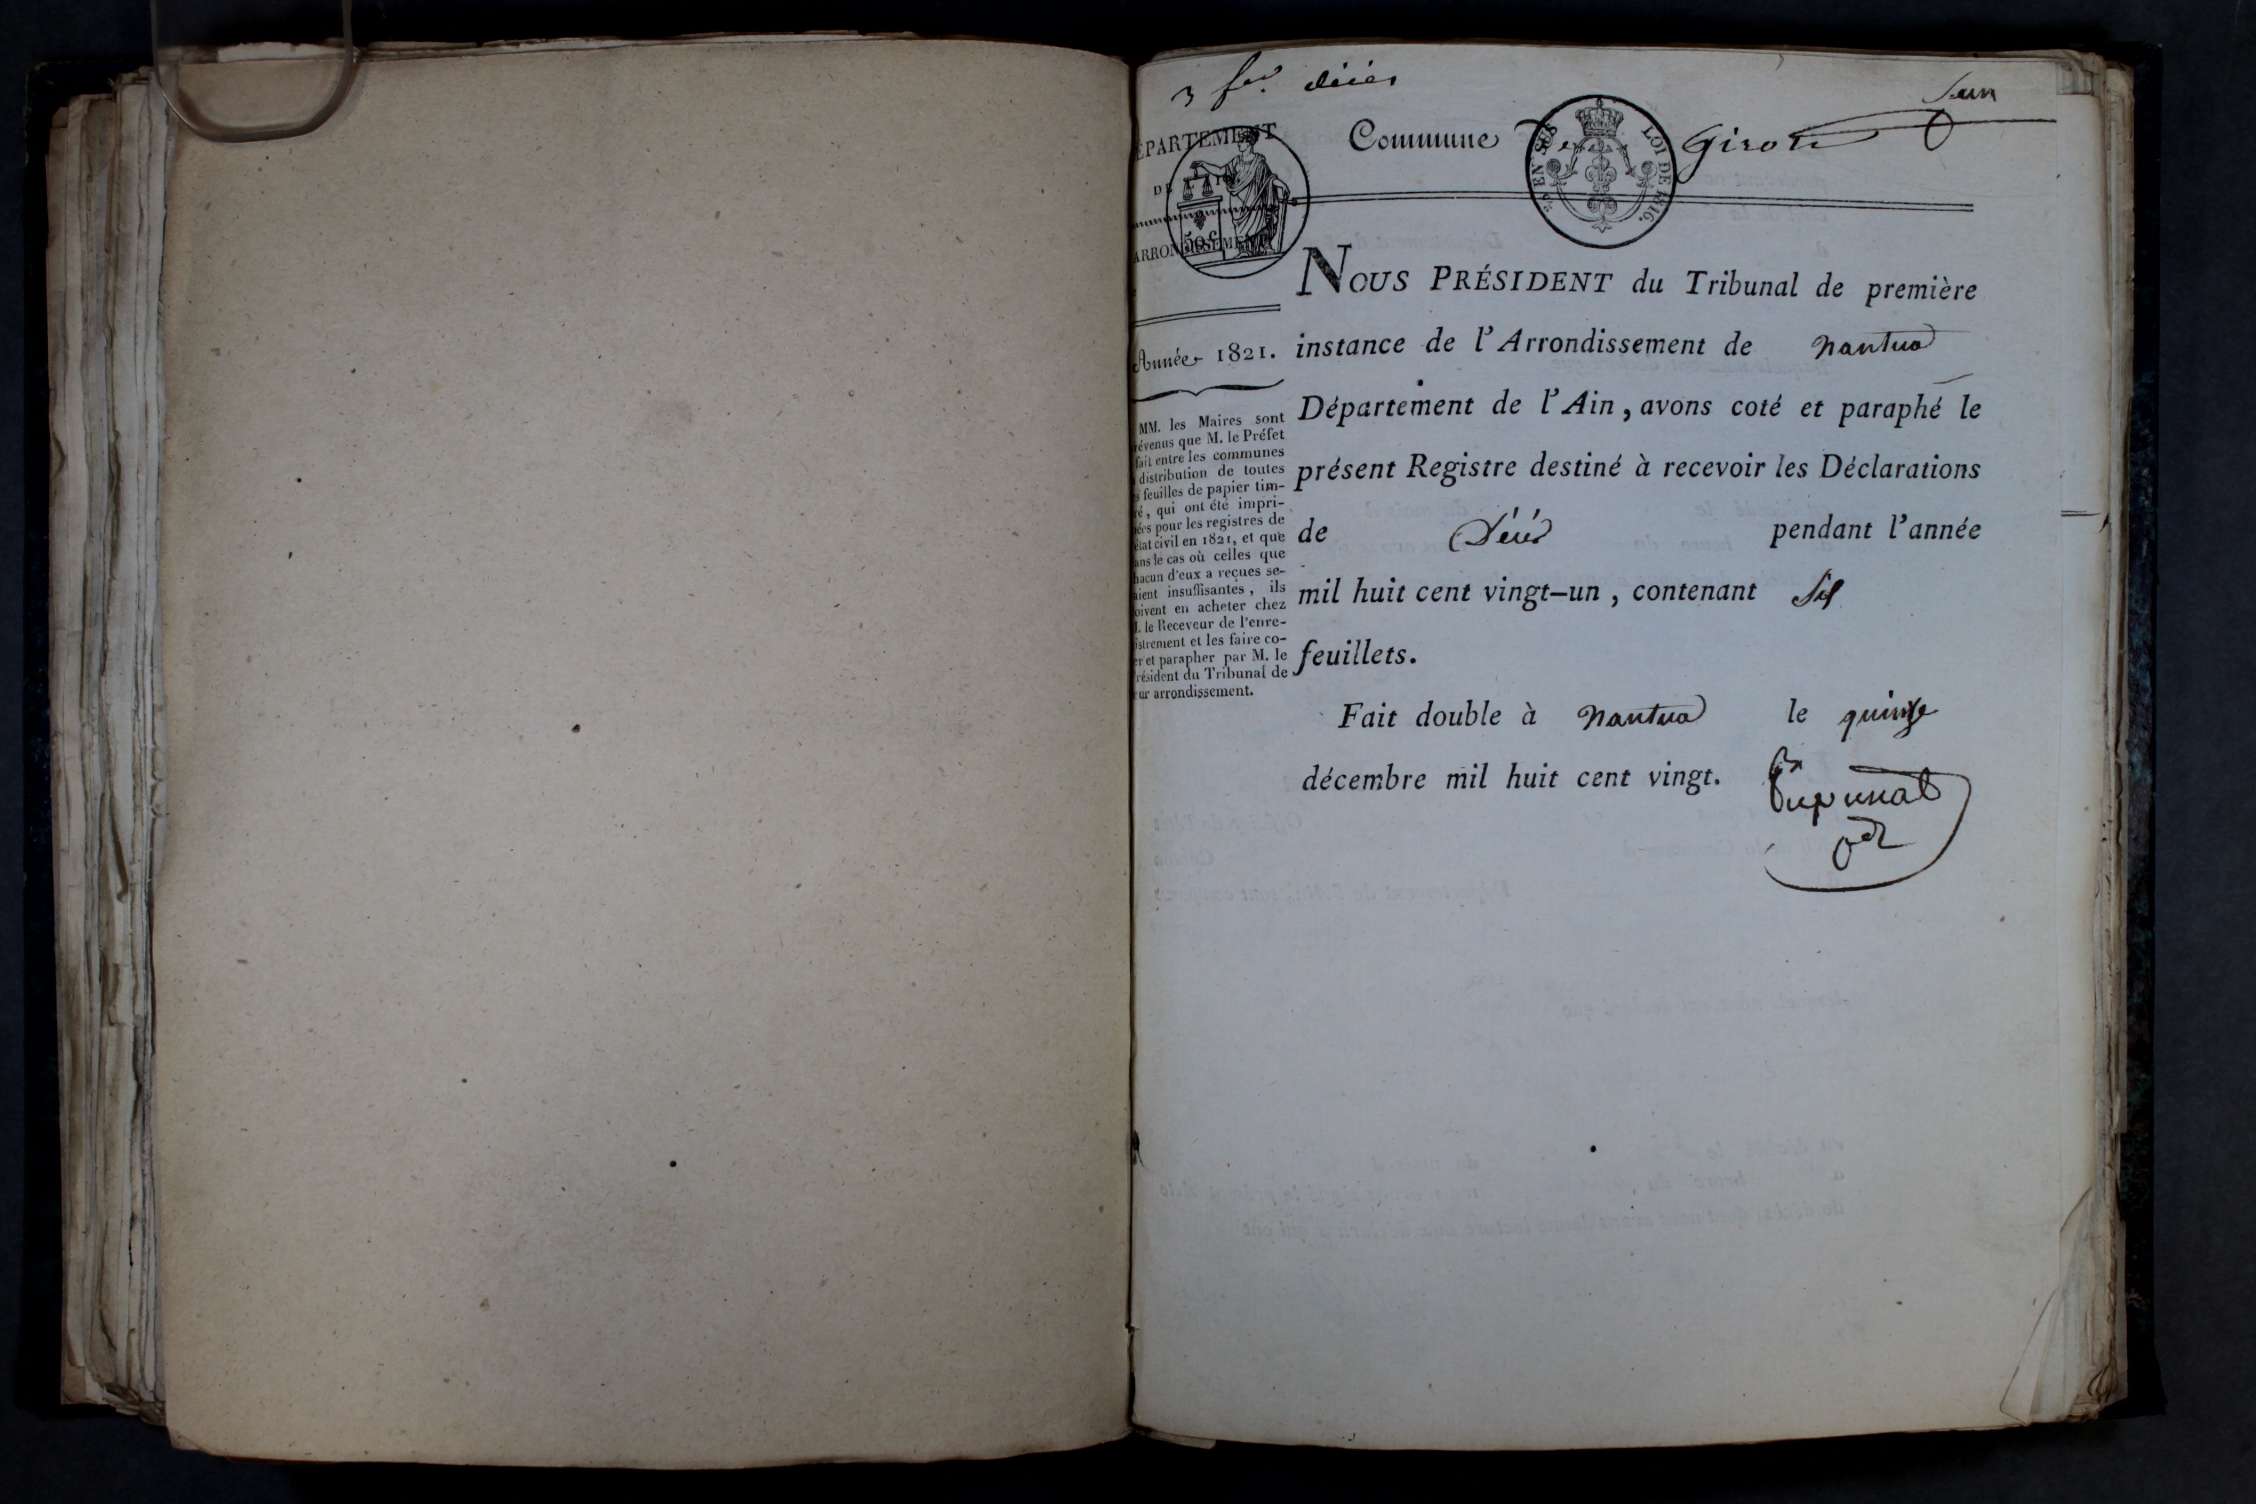 3 fer. décès
Commune De Giron
DÉPARTEMENT
DE L'AIN
50 c
5/6 EN SUS LOI DE 1816.
ARRONDISSEMENT
Année 1821.
MM. les Maires sont
révenus que M. le Préfet
fait entre les communes
distribution de toutes
s feuilles de papier tim-
ré, qui ont été impri-
ées pour les registres de
état civil en 1821, et que
ans le cas où celles que
hacun d'eux a reçues se-
aient insuffisantes, ils
oivent en acheter chez
M. le Receveur de l'enre-
istrement et les faire co-
er et parapher par M. le
résident du Tribunal de
ur arrondissement.
NOUS PRÉSIDENT du Tribunal de première
instance de l'Arrondissement de nantua
Département de l'Ain, avons coté et paraphé le
présent Registre destiné à recevoir les Déclarations
de Décès pendant l'année
mil huit cent vingt-un, contenant Six
feuillets.
Fait double à nantua le quinze
décembre mil huit cent vingt.